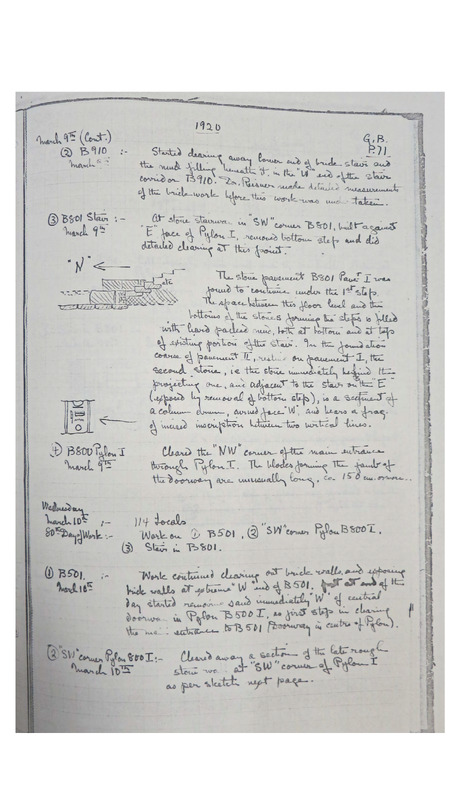 1920
G.B.
P.71
March 9th (Cont.)
(2) B 910 :-
March
Started clearing away lower end of brick stairs and
the mud filling beneath it, in the "W" end of the stair
corridor B910. Dr. Reisner made detailed measurements
of the brick work before this work was undertaken.
(3) B801 Stair :-
March 9th
At stone stairway in "SW" corner B801, built against
"E" face of Pylon I, removed bottom step and did
detailed clearing at this point.
"N"
etc
The stone pavement B801 Pavet I was
found to continue under the 1st steps.
The space between this floor level and the
bottoms of the stones forming the steps is filled
with hard packed mud, both at bottom and at top
of existing portion of the stair. In the foundation
course of pavement II, resting on pavement I, the
second stone, i.e. the stone immediately behind the
projecting one, and adjacent to the stair on the "E"
(exposed by removal of bottom step), is a segment of
a column drum, curved face "W", and bears a frag.
of incised inscription between two vertical lines.
(4) B800 Pylon I
March 9th
Cleared the "NW" corner of the main entrance
through Pylon I. The blocks forming the jambs of
the doorway are unusually long, ca 150 cm. or more..
Wednesday
March 10th :-
80th Day of Work :-
114 Locals
Work on (1) B501, (2) "SW" corner Pylon B800 I.
(3) Stair in B801.
(1) B501. :-
March 10th
Work continued clearing out brick walls and exposing
brick walls at extreme "W" end of B501. at end of the
day started removing sand immediately "W" of central
doorway in Pylon B500 I, as first step in clearing
the main entrance to B501 (Doorway in centre of Pylon).
(2) "SW" corner Pylon 800 I :-
March 10th
Cleared away a section of the late rough
stone wall at "SW" corner of Pylon I
as per sketch next page..